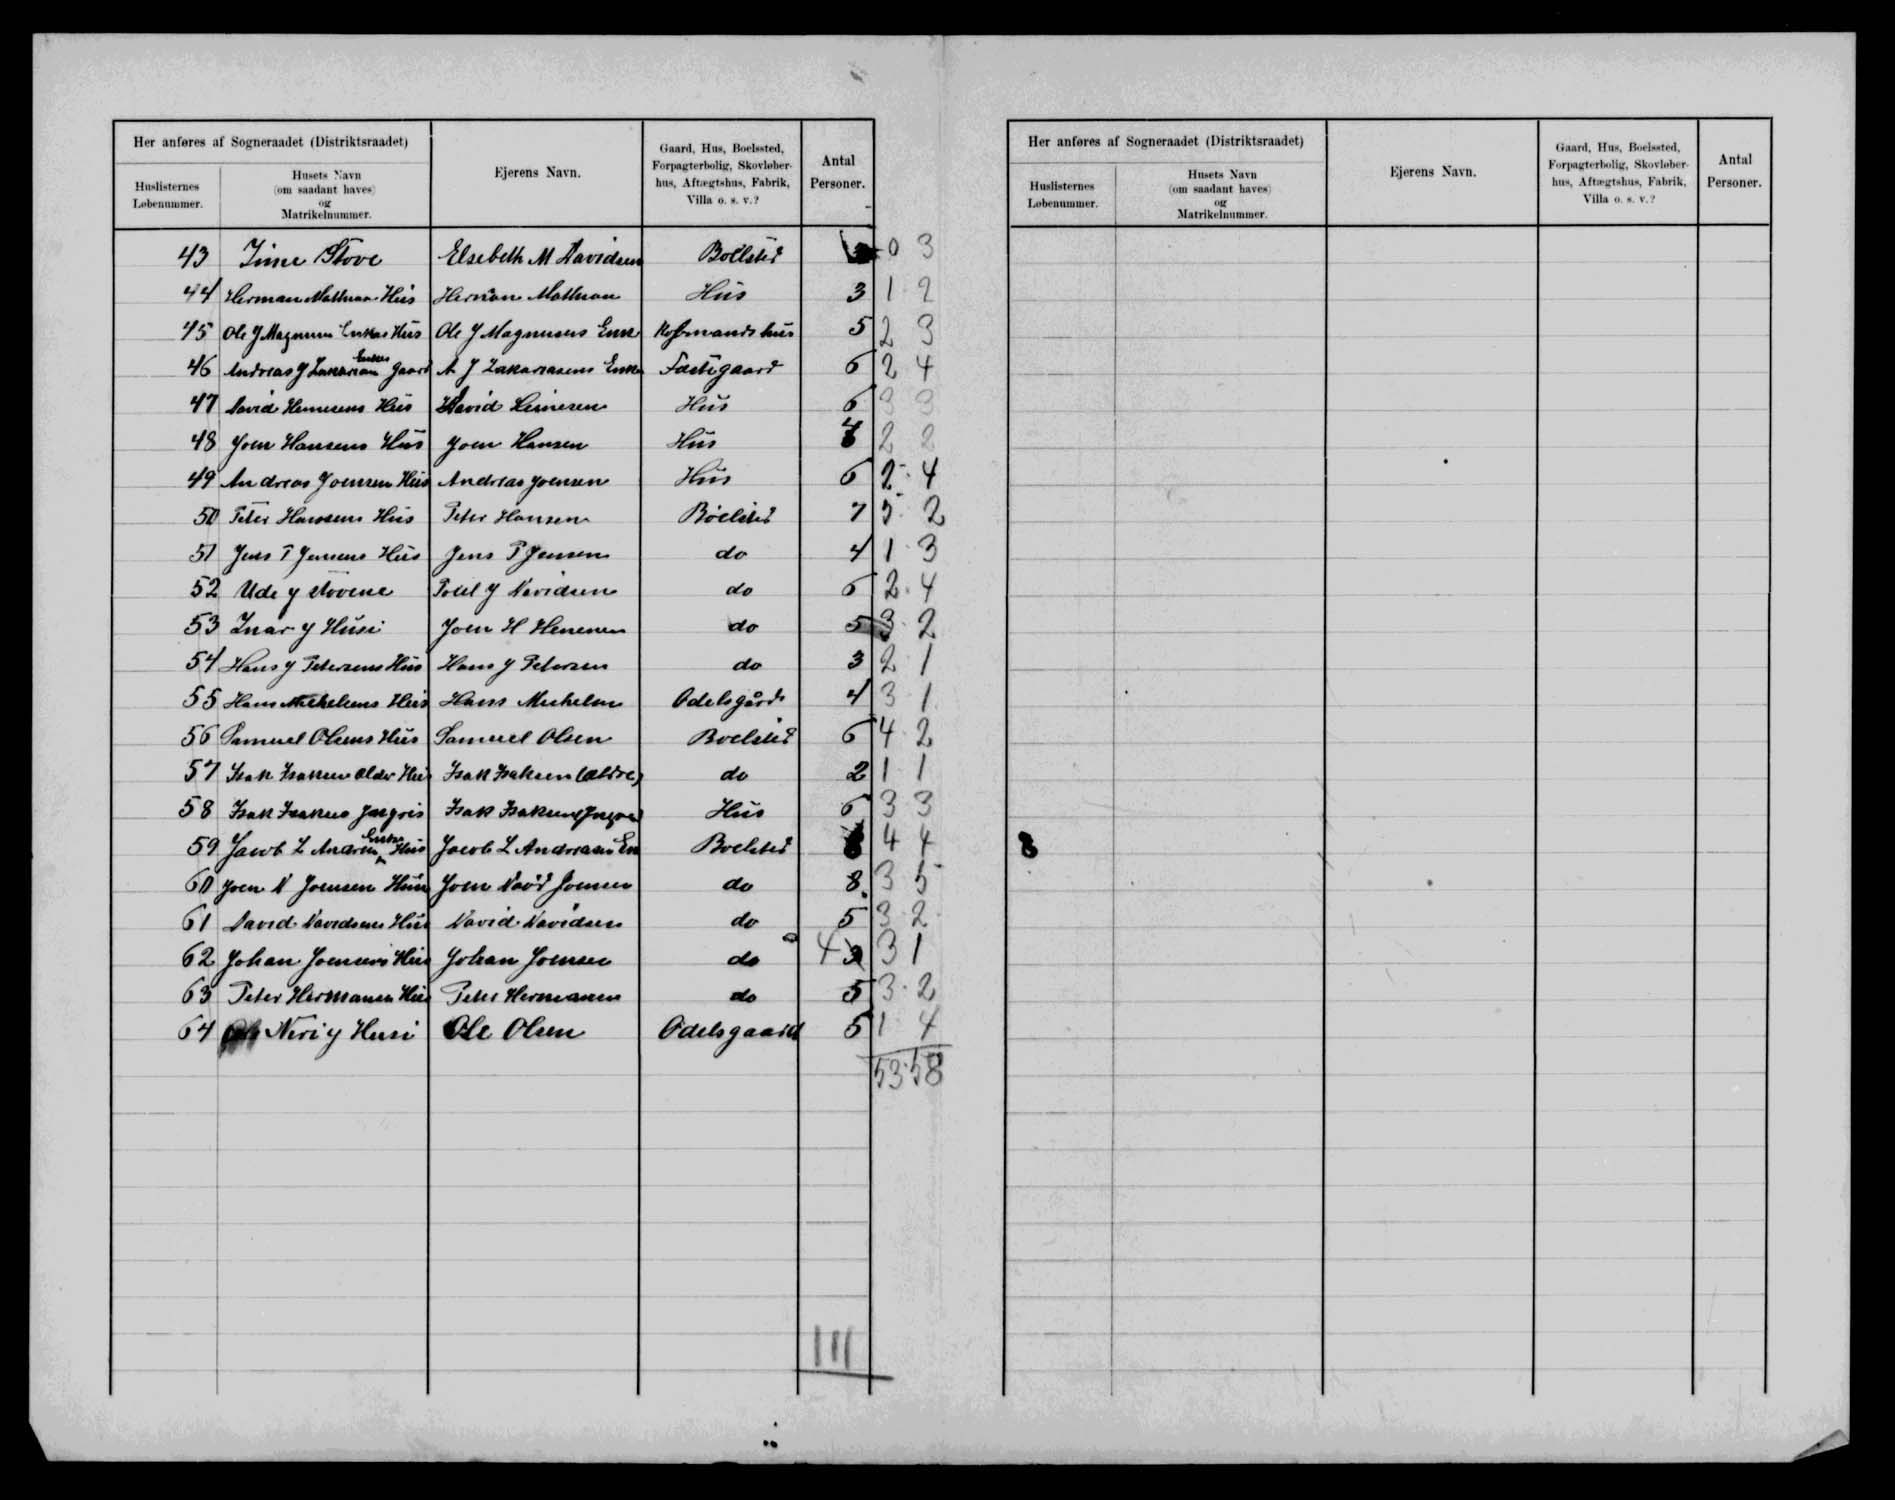 Her anføres af Sogneraadet (Distriktsraadet)
Huslisternes Løbenummer.
Husets Navn (om saadant haves) og Matrikelnummer.
Ejerens Navn.
Gaard, Hus, Boelssted, Forpagterbolig, Skovløberhus, Aftægtshus, Fabrik, Villa o. s. v.?
Antal Personer.
43 Stove Elsebeth M Davidsen Boelsted 0 3
44 Herman Mathson Hus Herman Mathson Hus 3 1 2
45 Ole J Magnusens Enkes Hus Ole J Magnusens Enke Kofmandshus 5 2 3
46 Andreas J Zakariasens Enkes Gaard A J Zakariasens Enke Fæstegaard 6 2 4
47 David Heinesens Hus David Heinesen Hus 6 3 3
48 Joen Hansens Hus Joen Hansen Hus 4 2 2
49 Andreas Joensen Hus Andreas Joensen Hus 6 2 4
50 Peter Hansens Hus Peter Hansen Boelsted 7 5 2
51 Jens P Jensens Hus Jens P Jensen do 4 1 3
52 Ude y Stovene Poul J Davidsen do 6 2 4
53 y Husi Joen H do 5 3 2
54 Hans J Petersens Hus Hans J Petersen do 3 2 1
55 Hans Mickelsens Hus Hans Mickelsen Odelsgård 4 3 1
56 Samuel Olsens Hus Samuel Olsen Boelsted 6 4 2
57 Isak Isaksen ældre Hus Isak Isaksen (ældre) do 2 1 1
58 Isak Isaksen Isak Isaksen Hus 6 3 3
59 Jacob L Enkes Hus Jacob L Andreasens En Boelsted 8 4 4
60 Joen D Joensen Hus Joen Joensen do 8 3 5
61 David Davidsens Hus David Davidsen do 5 3 2
62 Johan Joensens Hus Johan Joensen do 4 3 1
63 Peter Hermansen Hus Peter Hermansen do 5 3 2
64 y Husi Ole Olsen Odelsgaard 5 1 4
53 58
111
Her anføres af Sogneraadet (Distriktsraadet)
Huslisternes Løbenummer.
Husets Navn (om saadant haves) og Matrikelnummer.
Ejerens Navn.
Gaard, Hus, Boelssted, Forpagterbolig, Skovløberhus, Aftægtshus, Fabrik, Villa o. s. v.?
Antal Personer.
8